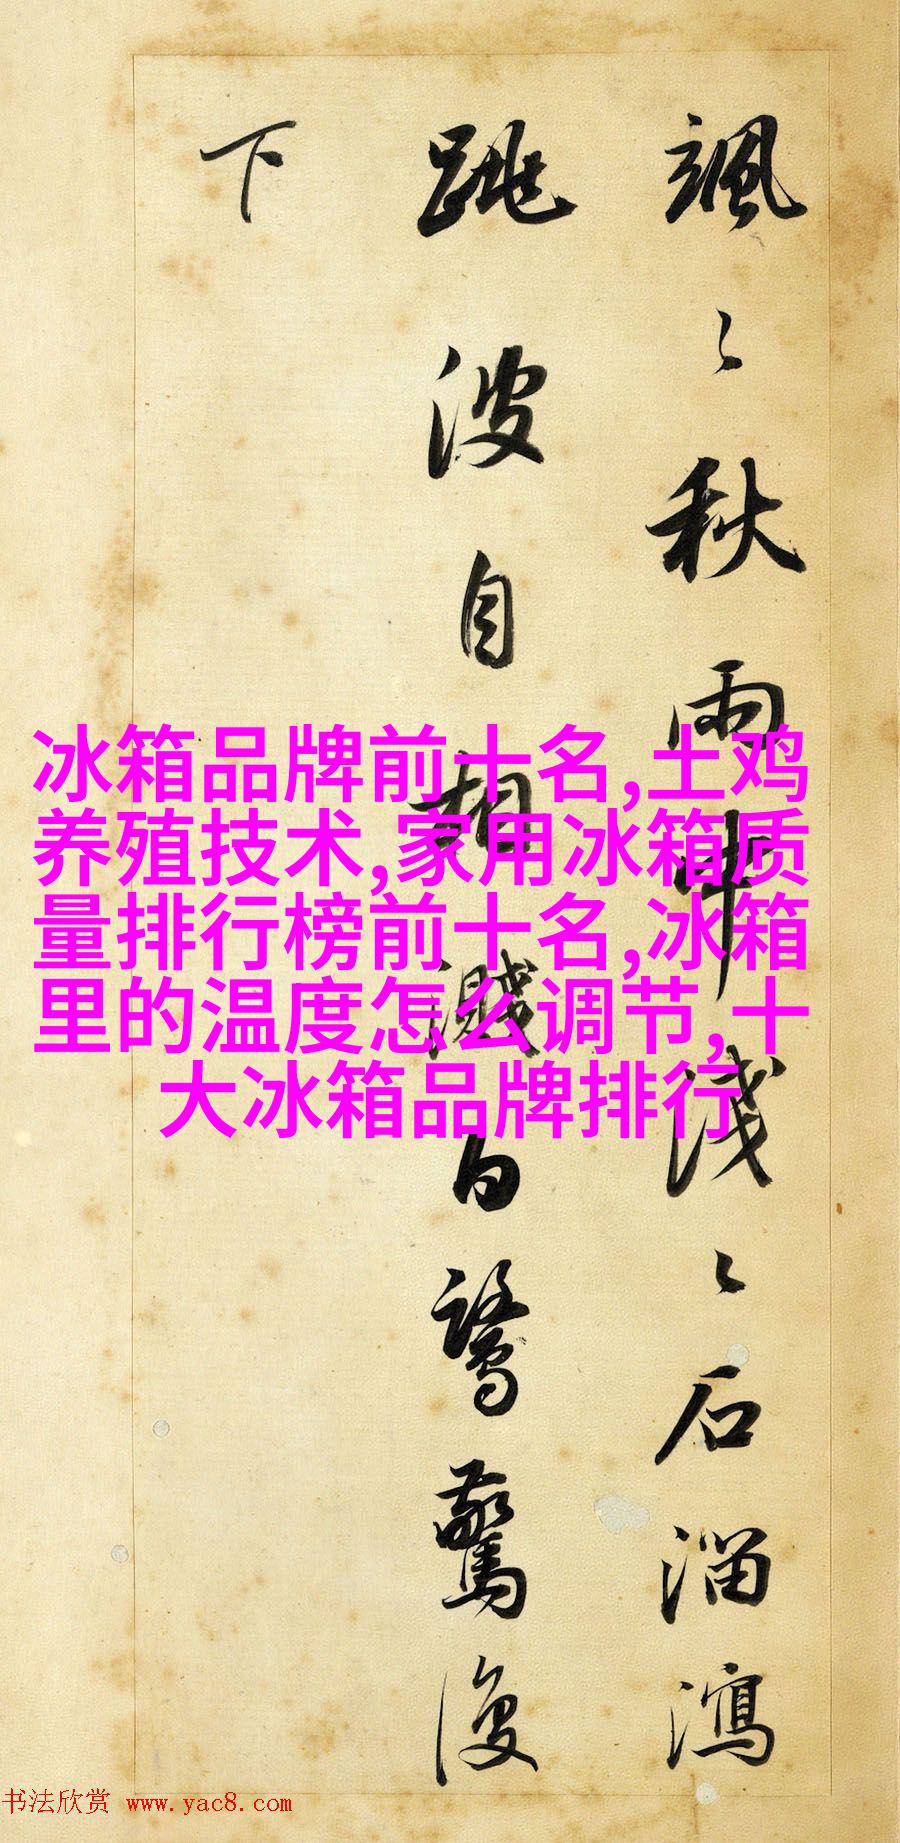 颯〻秋雨中淺〻石溜瀉
跳波自相濺白鷺驚復
下
冰箱品牌前十名,土鸡
养殖技术,家用冰箱质
量排行榜前十名,冰箱
里的温度怎么调节,十
大冰箱品牌排行
书法欣赏 www.yac8.com